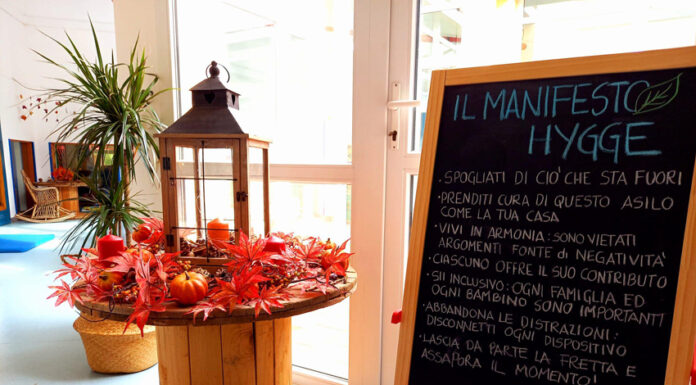 IL MANIFESTO
HYGGE
• SPOGLIATI DI CIO' CHE STA FUORI
• PRENDITI CURA DI QUESTO ASILO
COME LA TUA CASA
• VIVI IN ARMONIA: SONO VIETATI
ARGOMENTI FONTE DI NEGATIVITA'
• CIASCUNO OFFRE IL SUO CONTRIBUTO
• SII INCLUSIVO: OGNI FAMIGLIA ED
OGNI BAMBINO SONO IMPORTANTI
• ABBANDONA LE DISTRAZIONI:
DISCONNETTI OGNI DISPOSITIVO
• LASCIA DA PARTE LA FRETTA E
ASSAPORA IL MOMENTO!